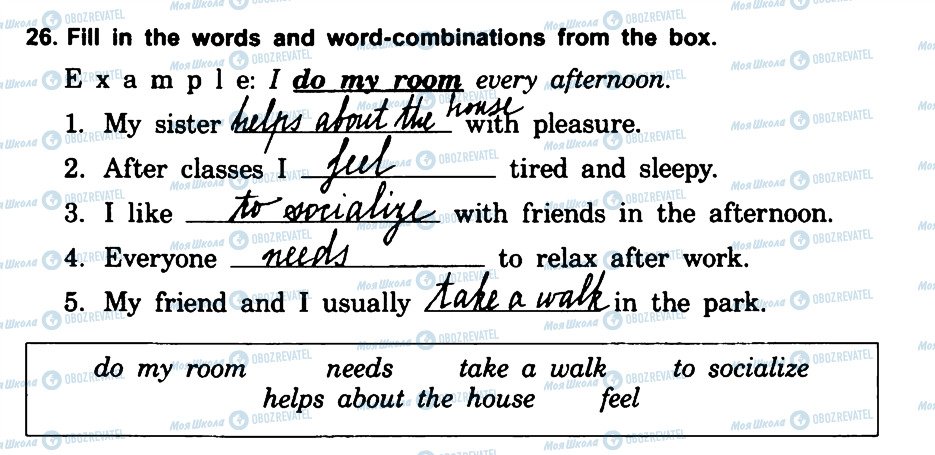 26. Fill in the words and word-combinations from the box.
E x a m p l e: I do my room every afternoon.
1. My sister helps about the house with pleasure.
2. After classes I feel tired and sleepy.
3. I like to socialize with friends in the afternoon.
4. Everyone needs to relax after work.
5. My friend and I usually take a walk in the park.
do my room needs take a walk to socialize
helps about the house feel